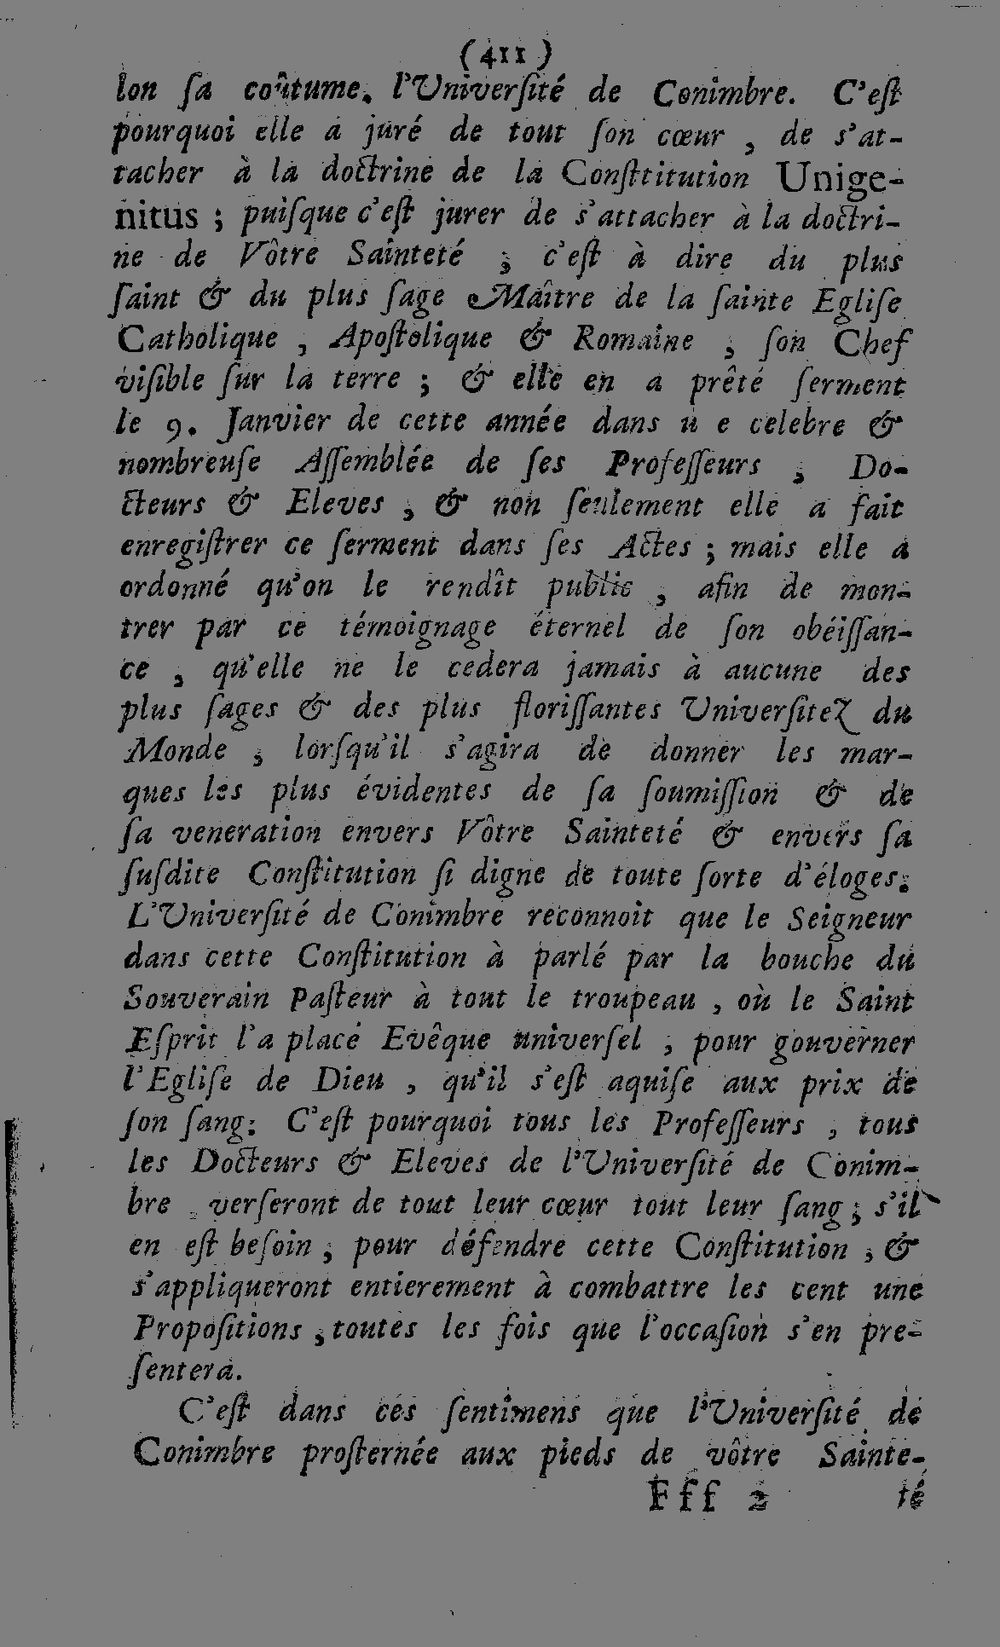 (411)
lon ſa coûtume. l'Univerſité de Conimbre. C'eſt
pourquoi elle a juré de tout ſon cœur, de s'at-
tacher à la doctrine de la Conſttitution Unige-
nitus; puiſque c'eſt jurer de s'attacher à la doctri-
ne de Vôtre Sainteté; c'eſt à dire du plus
ſaint & du plus ſage Maître de la ſainte Egliſe
Catholique, Apoſtolique & Romaine, ſon Chef
viſible ſur la terre; & elle en a prêté ſerment
le 9. Janvier de cette année dans u e celebre &
nombreuſe Aſſemblée de ſes Profeſſeurs, Do-
cteurs & Eleves, & non ſeulement elle a fait
enregiſtrer ce ſerment dans ſes Actes; mais elle a
ordonné qu'on le rendît public, afin de mon-
trer par ce témoignage éternel de ſon obéiſſan-
ce, qu'elle ne le cedera jamais à aucune des
plus ſages & des plus floriſſantes Univerſitez du
Monde, lorſqu'il s'agira de donner les mar-
ques les plus évidentes de ſa ſoumiſſion & de
ſa veneration envers Vôtre Sainteté & envers ſa
ſuſdite Conſtitution ſi digne de toute ſorte d'éloges.
L'Univerſité de Conimbre reconnoit que le Seigneur
dans cette Conſtitution à parlé par la bouche du
Souverain Paſteur à tout le troupeau, où le Saint
Eſprit l'a placé Evêque univerſel, pour gouverner
l'Egliſe de Dieu, qu'il s'eſt aquiſe aux prix de
ſon ſang: C'eſt pourquoi tous les Profeſſeurs, tous
les Docteurs & Eleves de l'Univerſité de Conim-
bre verſeront de tout leur cœur tout leur ſang, s'il
en eſt beſoin, pour défendre cette Conſtitution, &
s'appliqueront entierement à combattre les cent une
Propoſitions, toutes les fois que l'occaſion s'en pre-
ſentera.
C'eſt dans ces ſentimens que l'Univerſité de
Conimbre proſternée aux pieds de vôtre Sainte-
Fff 2 té